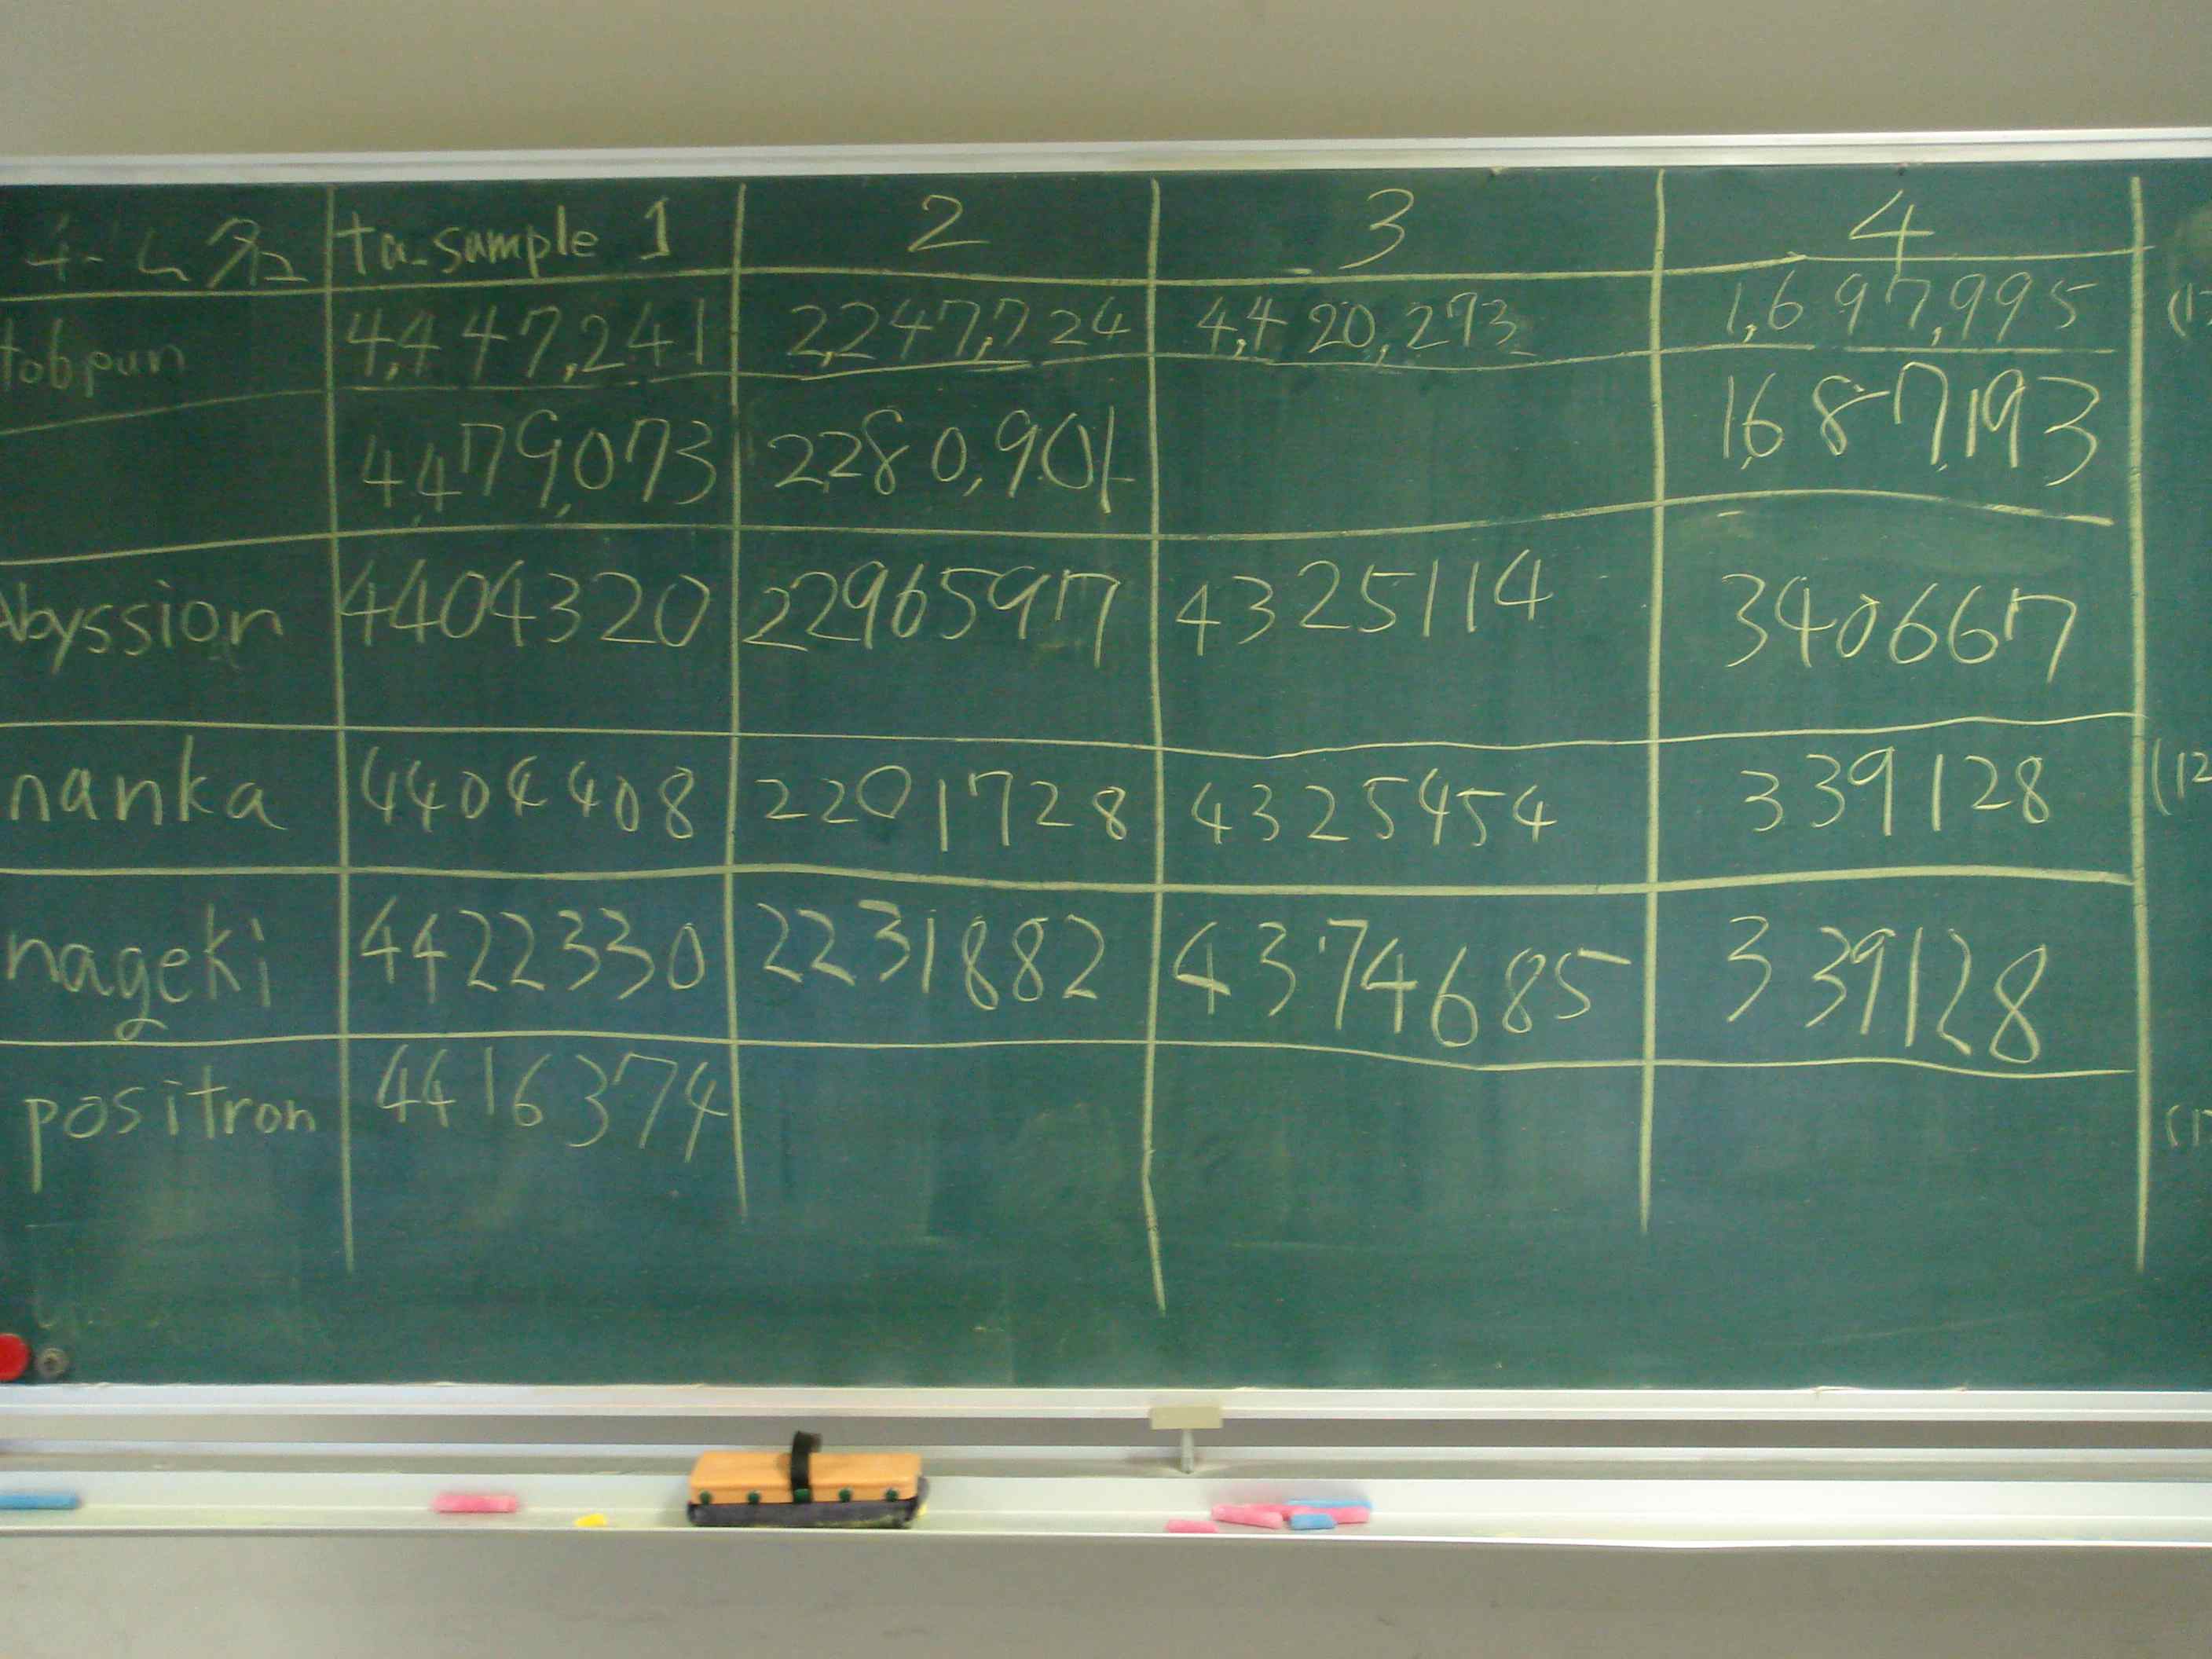 チーム名 ta-sample 1 2 3 4
tobpun 4,447,241 2,247,724 4,420,273 1,697,995
4,479,073 2,280,901 1,687,193
Abyssion 4404320 2296597 4325114 340667
nanka 4404408 2201728 4325454 339128
nageki 4422330 2231882 4374685 339128
positron 4416374